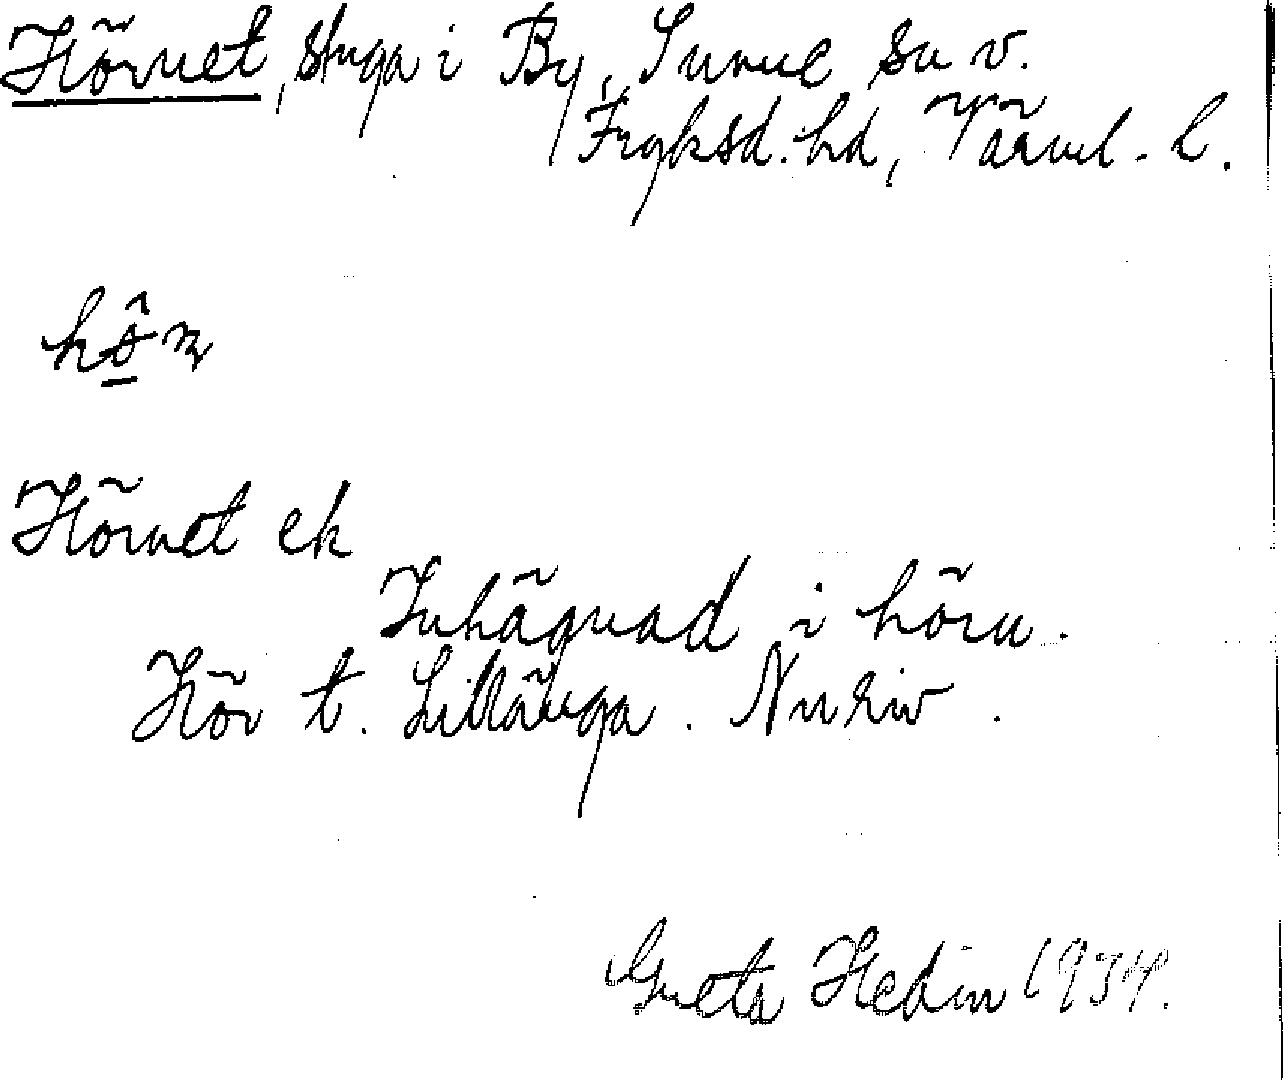 Hörnet, stuga i By, Sunne sn v.
Fryksd. hd, Värml. l.
Hörnet ek
Inhägnad i hörn.
Hör t. Lillänga.
Greta Hedin 1934.